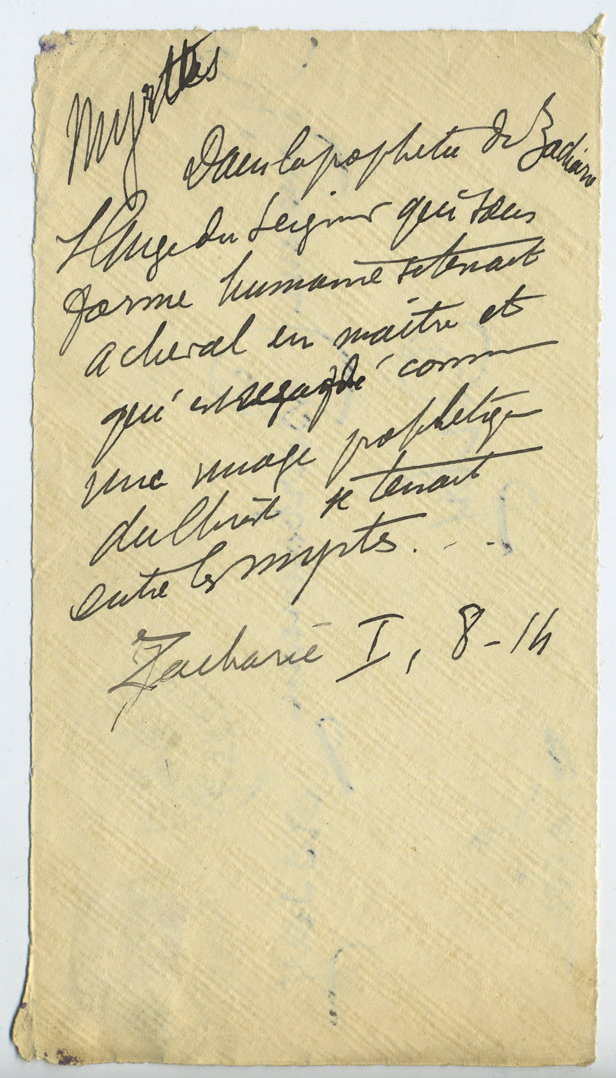 Myrtes
Dans la prophetie de Zacharie
l'Ange du Seigneur qui sous
forme humaine se tenait
a cheval en maitre et
qui est regardé comme
une image prophetique
du Christ se tenait
entre les myrtes. . . .
Zacharie I, 8-14